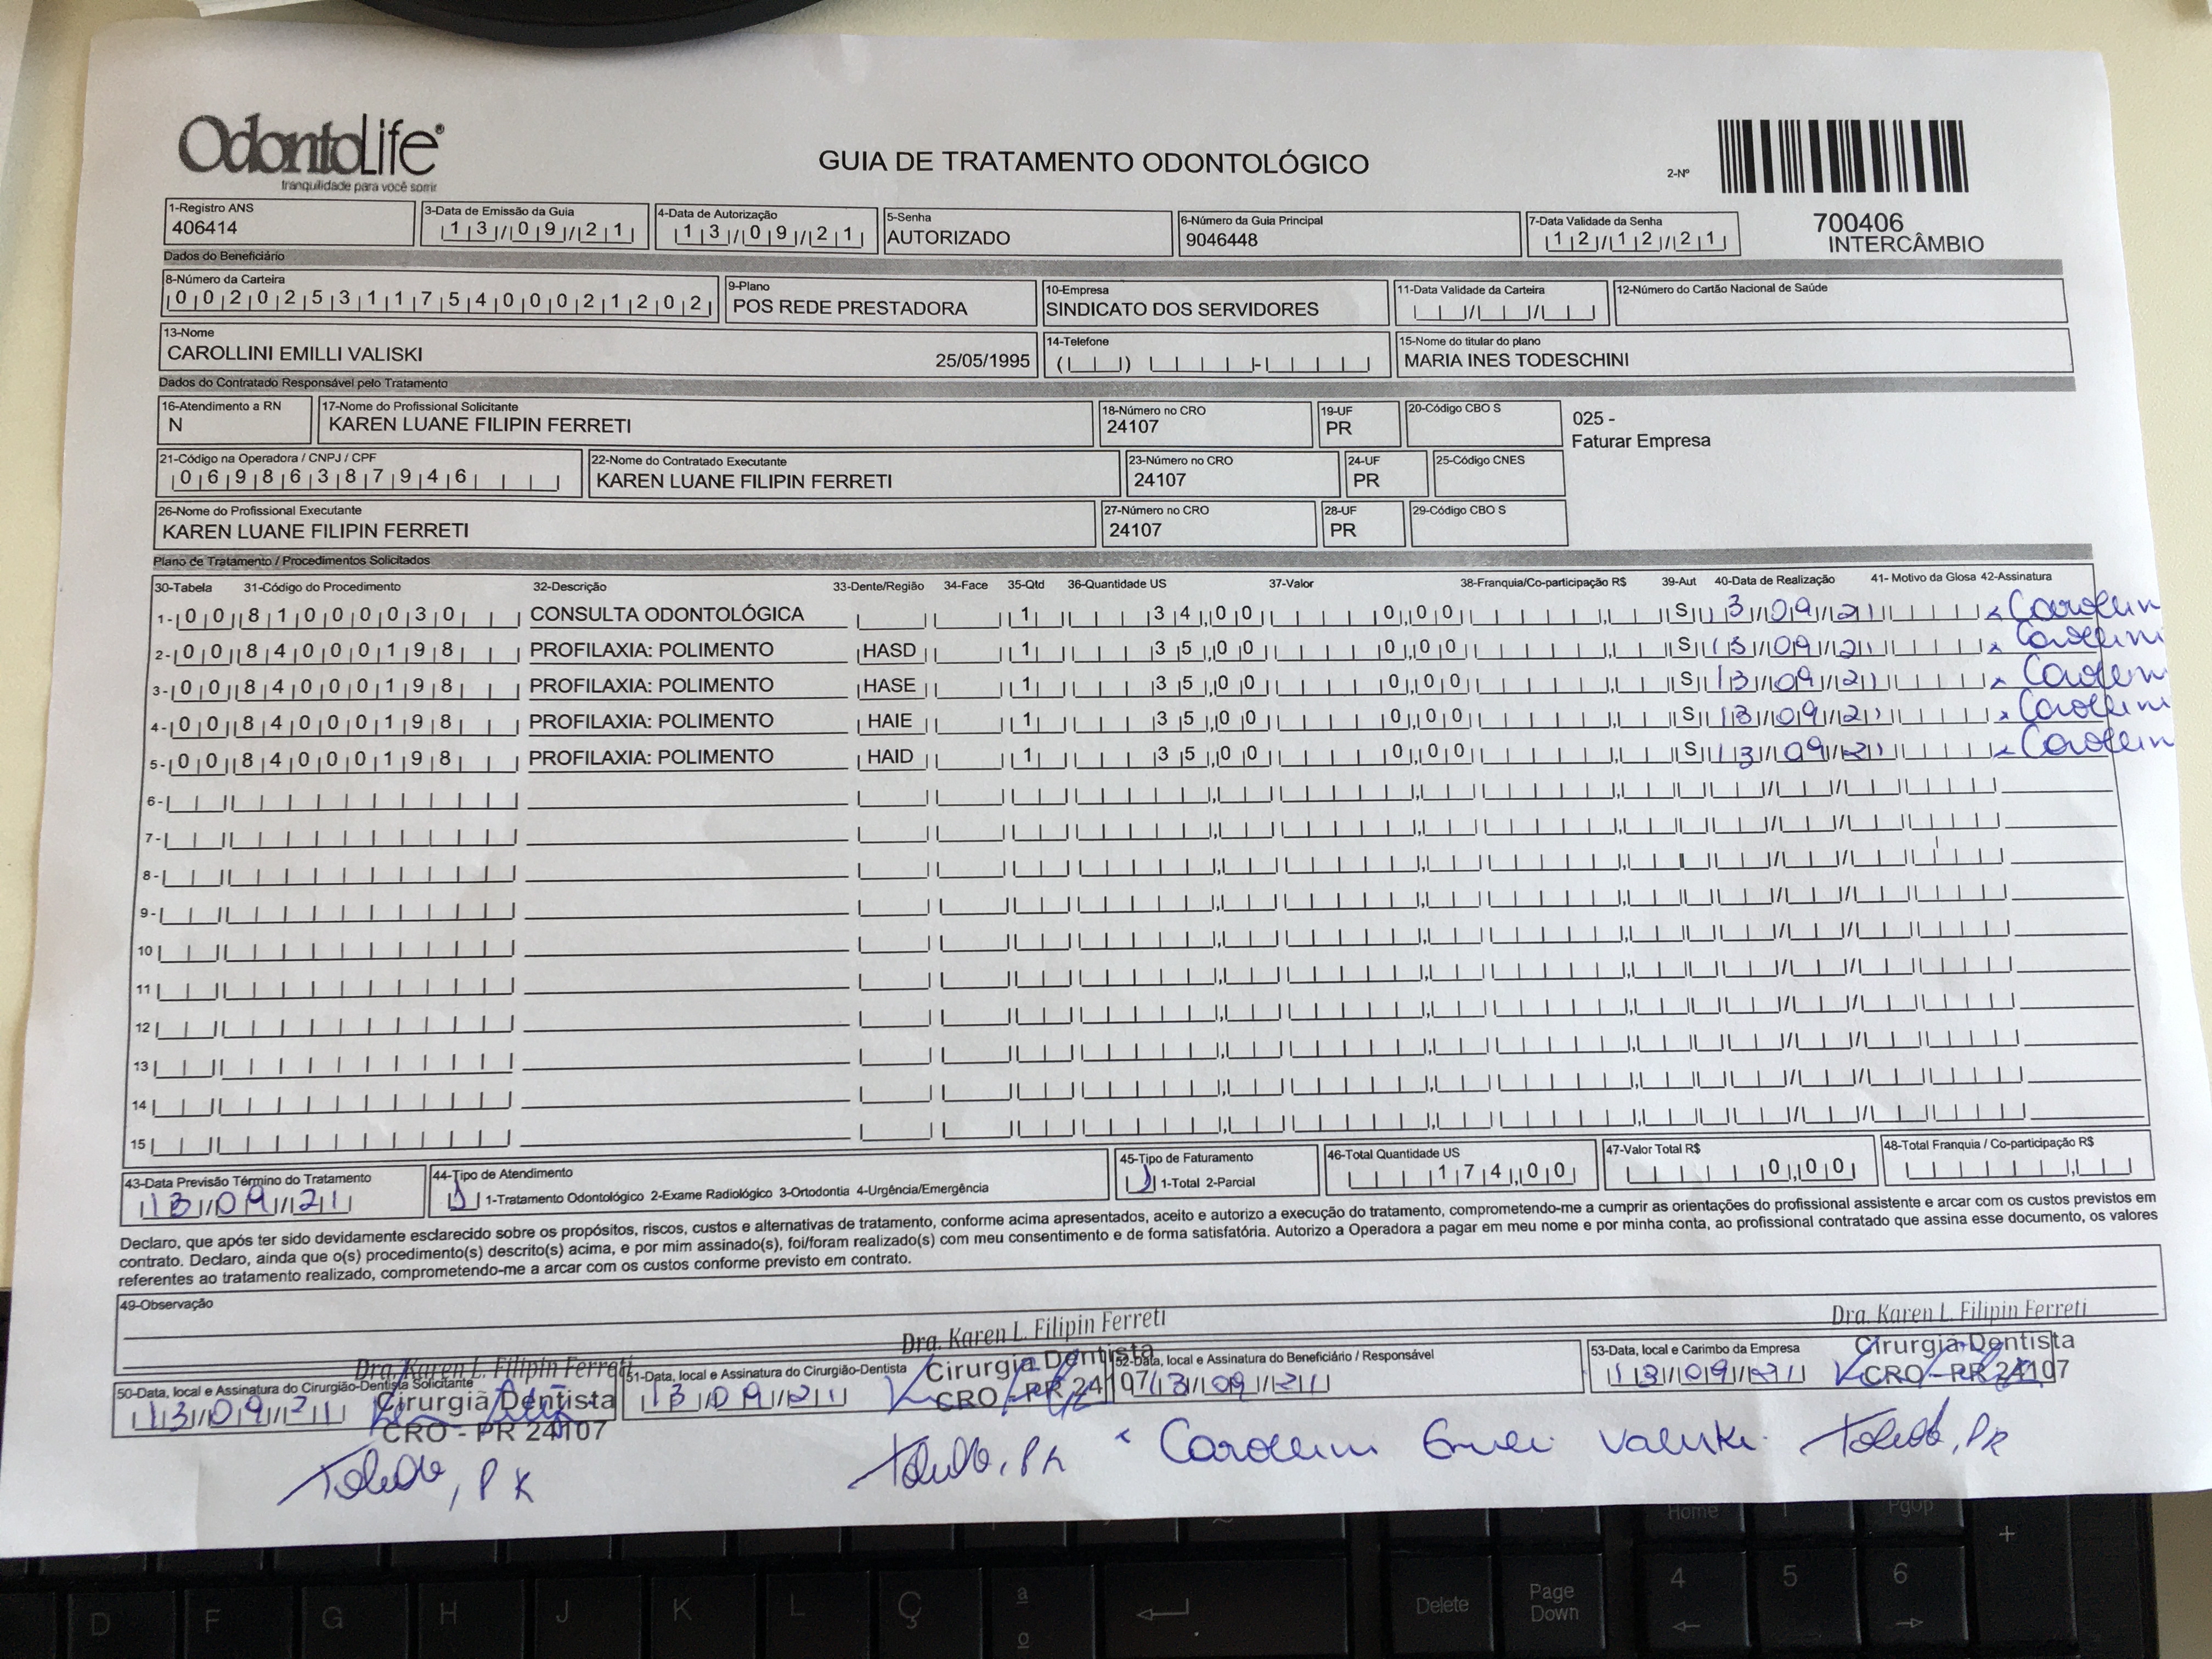 OdontoLife®
tranquilidade para você sorrir
GUIA DE TRATAMENTO ODONTOLÓGICO
2-Nº
700406
INTERCÂMBIO
1-Registro ANS
406414
3-Data de Emissão da Guia
13/09/21
4-Data de Autorização
13/09/21
5-Senha
AUTORIZADO
6-Número da Guia Principal
9046448
7-Data Validade da Senha
12/12/21
Dados do Beneficiário
8-Número da Carteira
00202531175400021202
9-Plano
POS REDE PRESTADORA
10-Empresa
SINDICATO DOS SERVIDORES
11-Data Validade da Carteira
12-Número do Cartão Nacional de Saúde
13-Nome
CAROLLINI EMILLI VALISKI 25/05/1995
14-Telefone
15-Nome do titular do plano
MARIA INES TODESCHINI
Dados do Contratado Responsável pelo Tratamento
16-Atendimento a RN
N
17-Nome do Profissional Solicitante
KAREN LUANE FILIPIN FERRETI
18-Número no CRO
24107
19-UF
PR
20-Código CBO S
025 -
Faturar Empresa
21-Código na Operadora / CNPJ / CPF
06986387946
22-Nome do Contratado Executante
KAREN LUANE FILIPIN FERRETI
23-Número no CRO
24107
24-UF
PR
25-Código CNES
26-Nome do Profissional Executante
KAREN LUANE FILIPIN FERRETI
27-Número no CRO
24107
28-UF
PR
29-Código CBO S
Plano de Tratamento / Procedimentos Solicitados
30-Tabela 31-Código do Procedimento 32-Descrição 33-Dente/Região 34-Face 35-Qtd 36-Quantidade US 37-Valor 38-Franquia/Co-participação R$ 39-Aut 40-Data de Realização 41- Motivo da Glosa 42-Assinatura
1- 00 81000030 CONSULTA ODONTOLÓGICA 1 34,00 0,00 S 13/09/21 x Carollini
2- 00 84000198 PROFILAXIA: POLIMENTO HASD 1 35,00 0,00 S 13/09/21 x Carollini
3- 00 84000198 PROFILAXIA: POLIMENTO HASE 1 35,00 0,00 S 13/09/21 x Carollini
4- 00 84000198 PROFILAXIA: POLIMENTO HAIE 1 35,00 0,00 S 13/09/21 x Carollini
5- 00 84000198 PROFILAXIA: POLIMENTO HAID 1 35,00 0,00 S 13/09/21 x Carollini
6-
7-
8-
9-
10
11
12
13
14
15
43-Data Previsão Término do Tratamento
13/09/21
44-Tipo de Atendimento
1 1-Tratamento Odontológico 2-Exame Radiológico 3-Ortodontia 4-Urgência/Emergência
45-Tipo de Faturamento
1 1-Total 2-Parcial
46-Total Quantidade US
174,00
47-Valor Total R$
0,00
48-Total Franquia / Co-participação R$
Declaro, que após ter sido devidamente esclarecido sobre os propósitos, riscos, custos e alternativas de tratamento, conforme acima apresentados, aceito e autorizo a execução do tratamento, comprometendo-me a cumprir as orientações do profissional assistente e arcar com os custos previstos em
contrato. Declaro, ainda que o(s) procedimento(s) descrito(s) acima, e por mim assinado(s), foi/foram realizado(s) com meu consentimento e de forma satisfatória. Autorizo a Operadora a pagar em meu nome e por minha conta, ao profissional contratado que assina esse documento, os valores
referentes ao tratamento realizado, comprometendo-me a arcar com os custos conforme previsto em contrato.
49-Observação
50-Data, local e Assinatura do Cirurgião-Dentista Solicitante
13/09/21
Dra. Karen L. Filipin Ferreti
Cirurgiã Dentista
CRO - PR 24107
Toledo, PR
51-Data, local e Assinatura do Cirurgião-Dentista
13/09/21
Dra. Karen L. Filipin Ferreti
Cirurgiã Dentista
CRO - PR 24107
Toledo, PR
52-Data, local e Assinatura do Beneficiário / Responsável
13/09/21
x Carollini Emilli Valiski
53-Data, local e Carimbo da Empresa
13/09/21
Dra. Karen L. Filipin Ferreti
Cirurgiã Dentista
CRO - PR 24107
Toledo, PR
D F G H J K L Ç ª º
Delete
Page Down
Home
PgUp
4 5 6 +